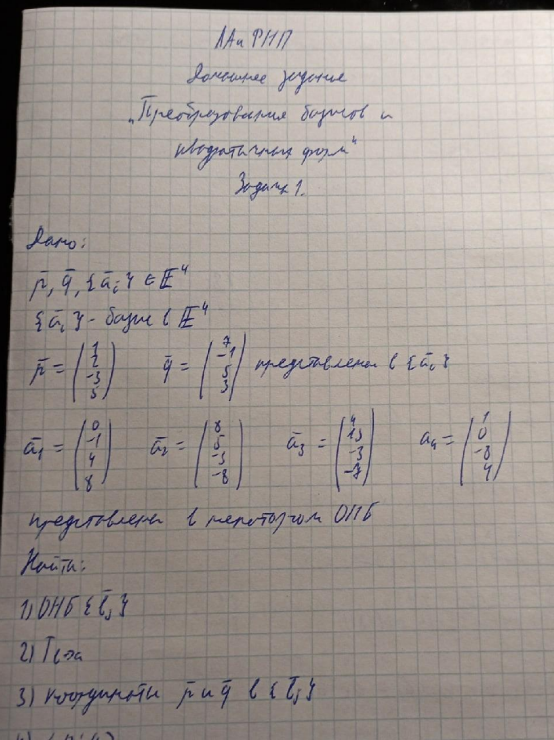 ЛА и ФНП
Домашнее задание
„Преобразования базисов и
квадратичных форм“
Задача 1.
Дано:
p̄, q̄, {āᵢ} ∈ E⁴
{āᵢ} - базис в E⁴
p̄ = (1 2 -3 5) q̄ = (7 -1 5 3) представлены в {āᵢ}
ā₁ = (0 -1 4 8) ā₂ = (8 5 -3 -8) ā₃ = (4 13 -3 -7) a₄ = (1 0 -8 4)
представлены в некотором ОНБ
Найти:
1) ОНБ {l̄ⱼ}
2) Tₗ→ₐ
3) Координаты p̄ и q̄ в {l̄ⱼ}